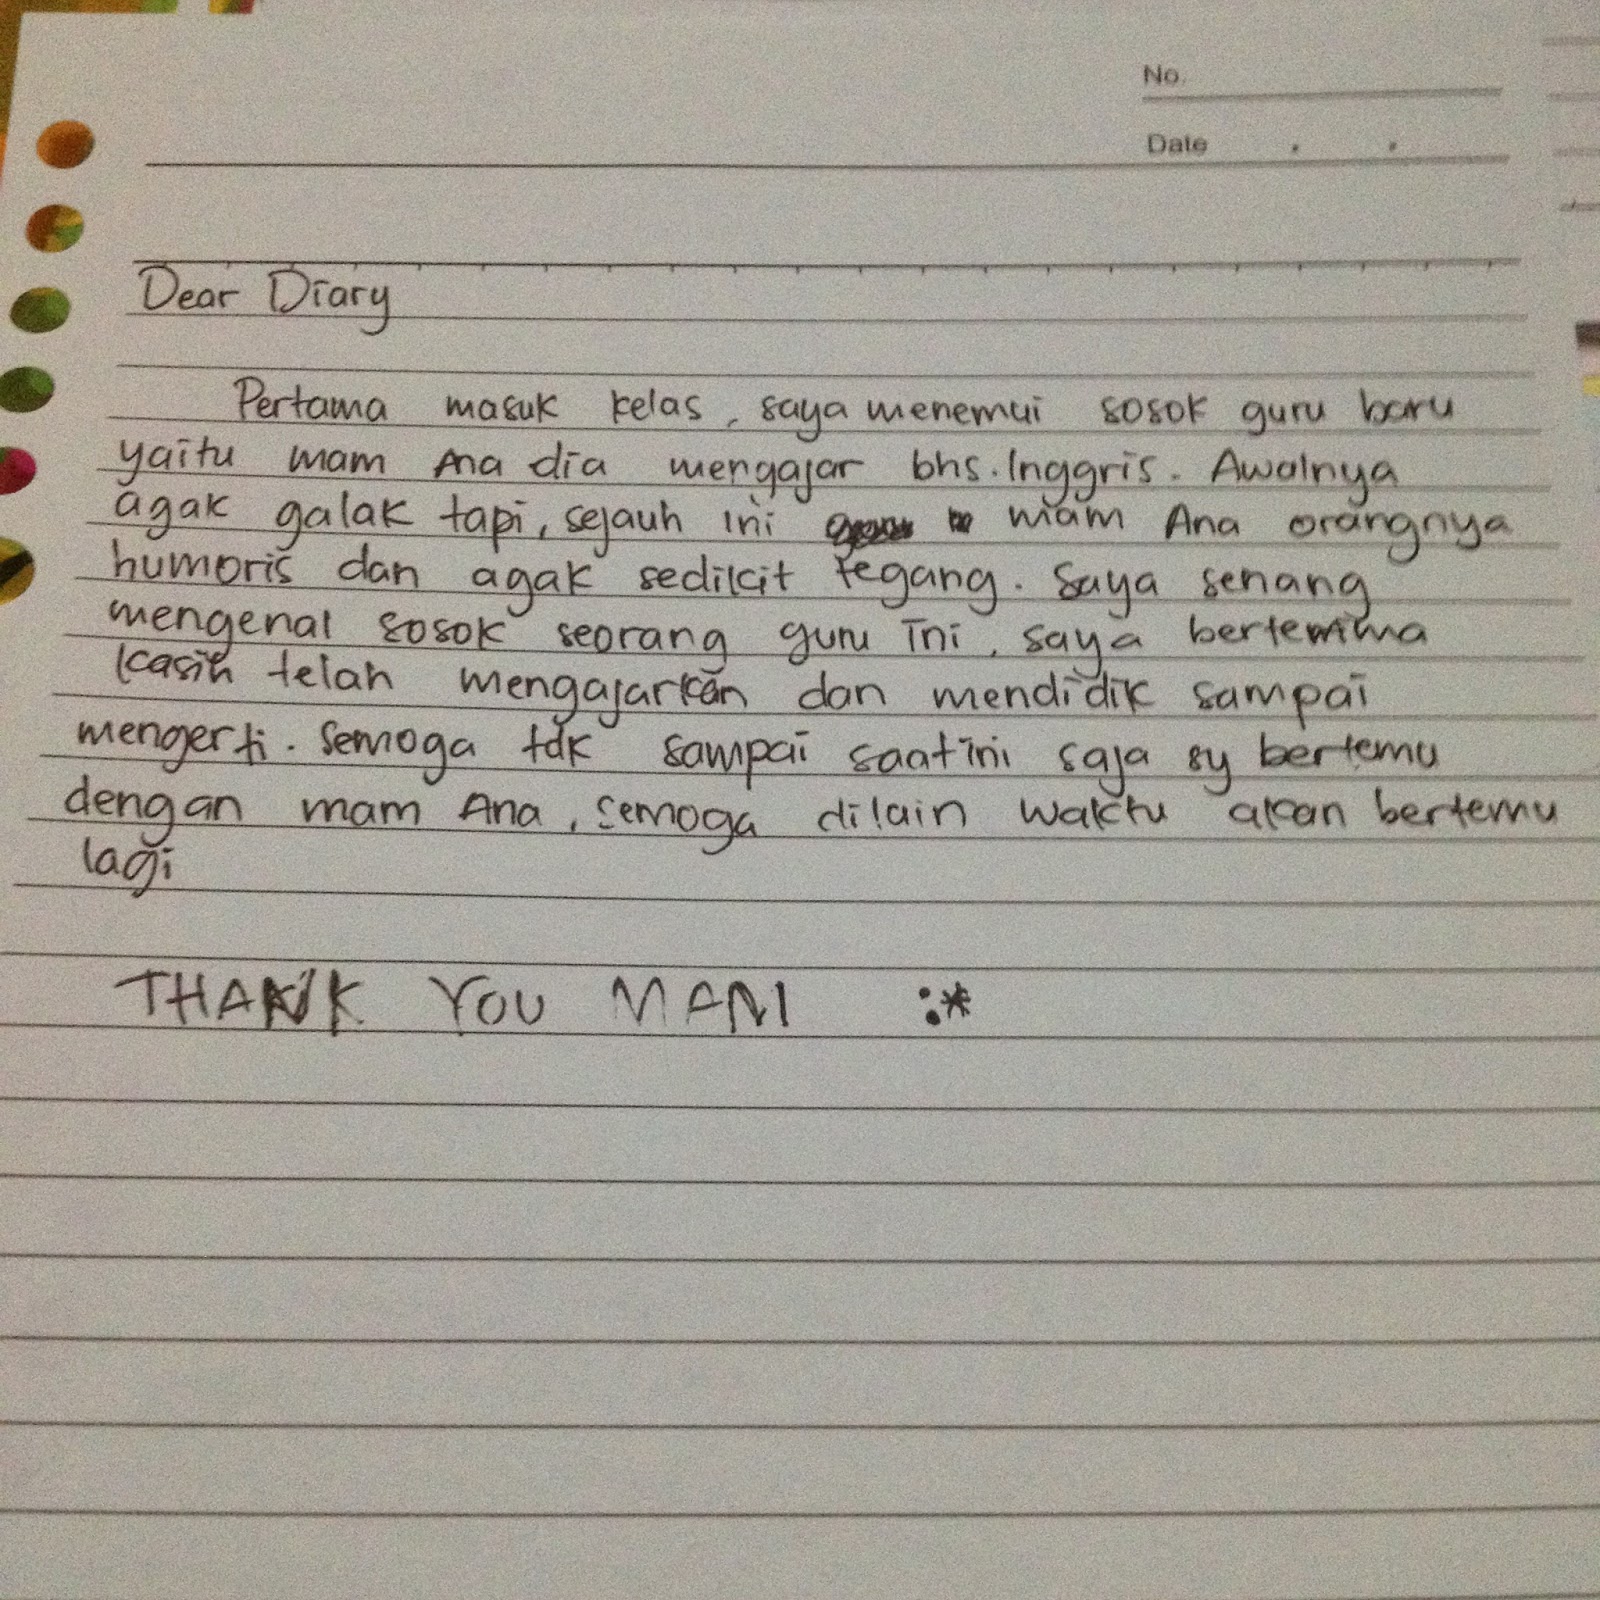 No.
Date . .
Dear Diary
Pertama masuk kelas, saya menemui sosok guru baru
yaitu mam Ana dia mengajar bhs.Inggris. Awalnya
agak galak tapi, sejauh ini mam Ana orangnya
humoris dan agak sedikit tegang. Saya senang
mengenal sosok seorang guru ini, saya berterima
kasih telah mengajarkan dan mendidik sampai
mengerti. Semoga tdk sampai saat ini saja sy bertemu
dengan mam Ana, semoga dilain waktu akan bertemu
lagi
THANK YOU MAM :*